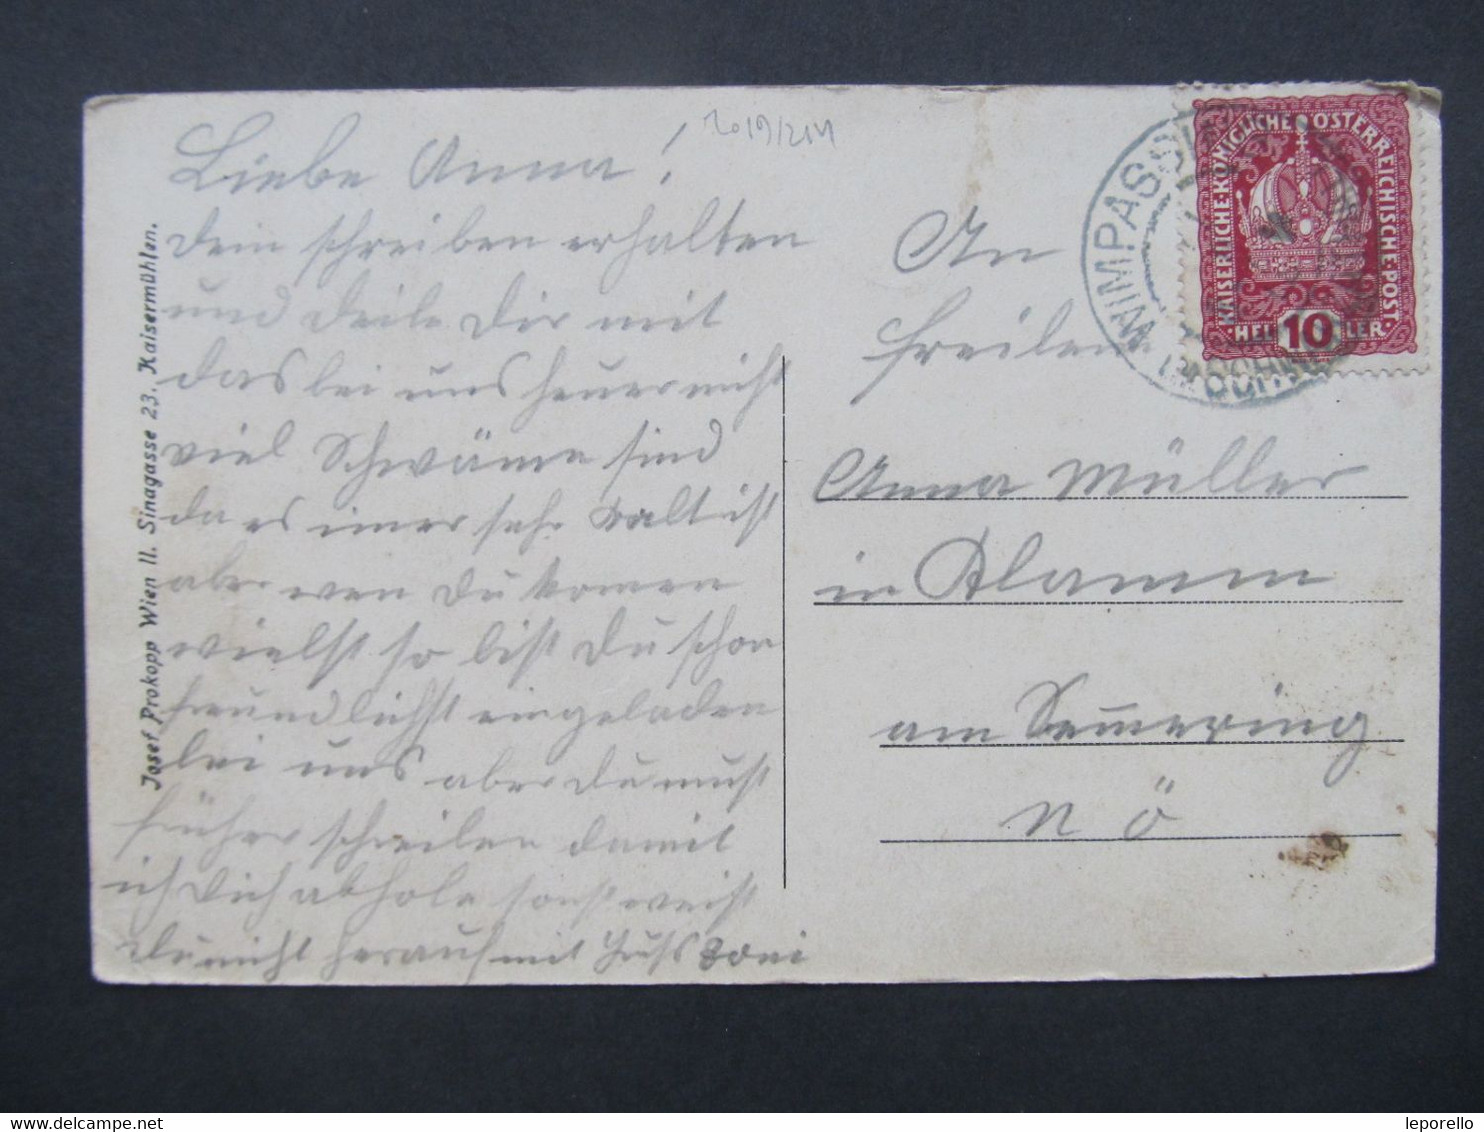 Liebe Anna!
2019/214
dein schreiben erhalten
und deile Dir mit
das bei uns heuer nicht
viel Schwäme sind
da es imer sehr kalt ist
aber wen Du komen
wielst so bist Du schon
freundlichst eingeladen
bei uns aber Du must
früher schreiben damit
ich Dich abhole sonst weist
Du nicht herauf mit Gruß Toni
Josef Prokopp Wien II. Sinagasse 23. Kaisermühlen.
An
Freilein
Anna Müller
in Klamm
am Semmering
N Ö
KAISERLICHE·KÖNIGLICHE ÖSTERREICHISCHE·POST·
HELLER
10
WIMPASSING
leporello